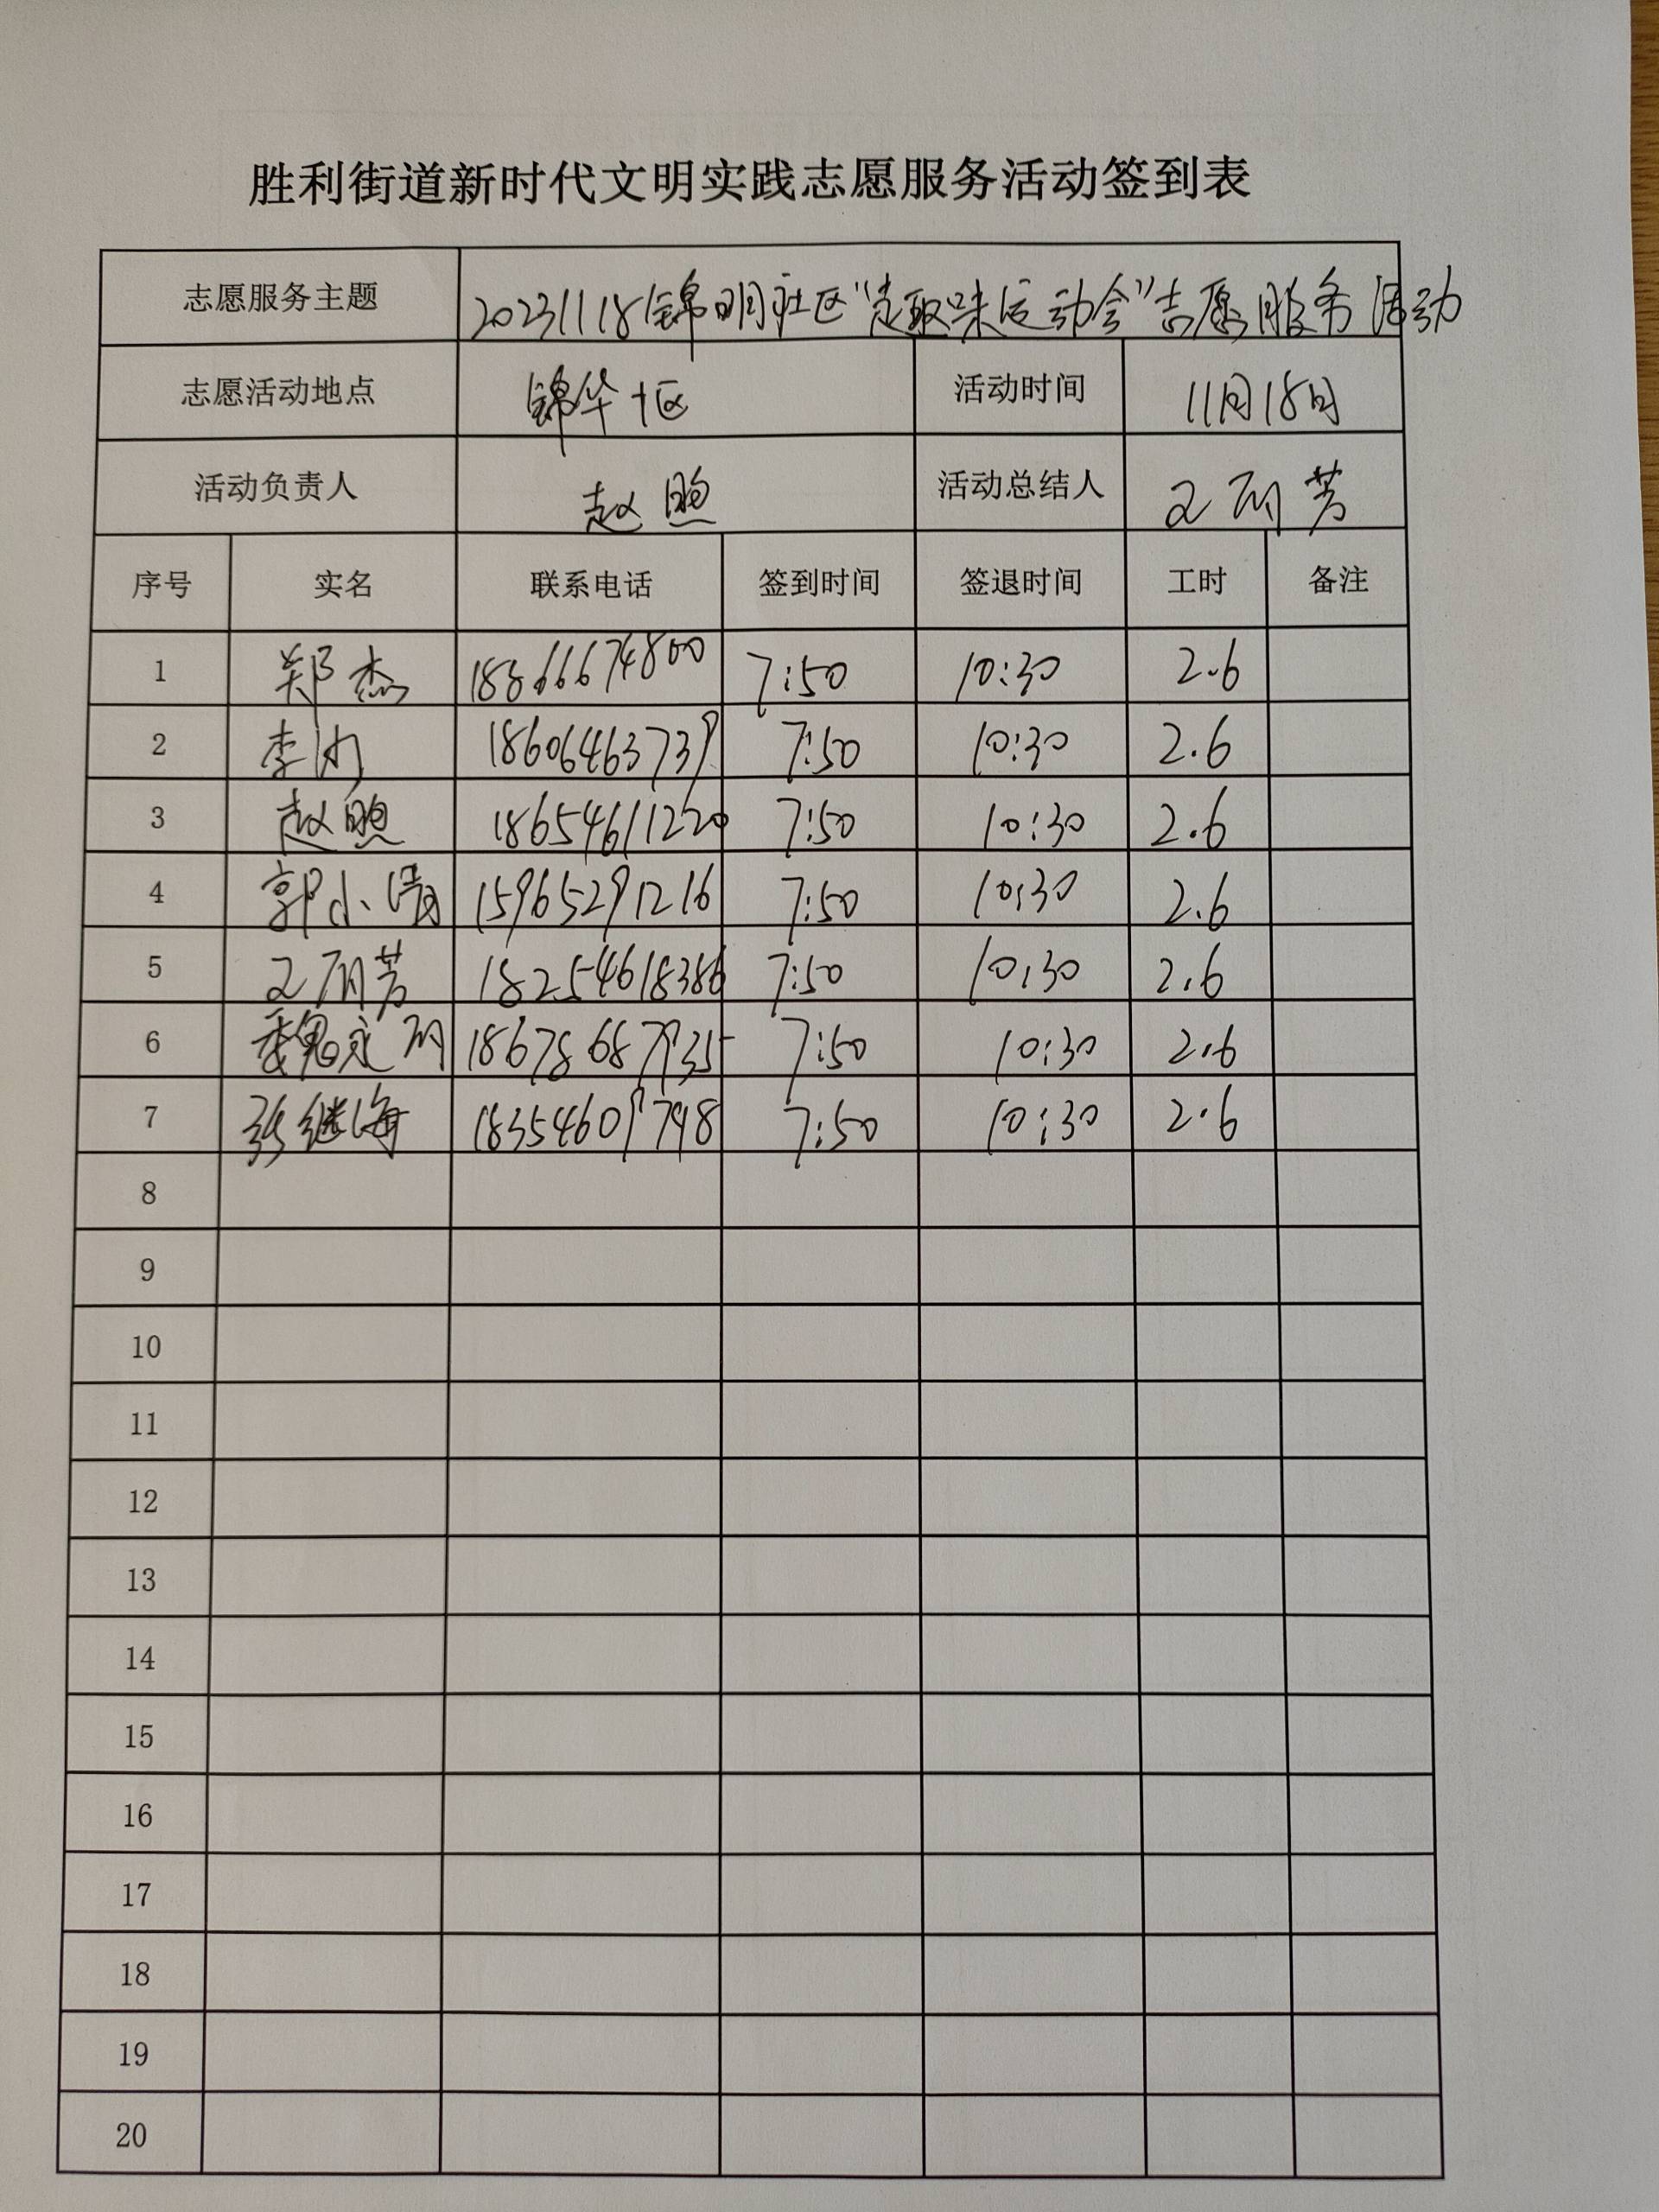 胜利街道新时代文明实践志愿服务活动签到表
志愿服务主题 20231118锦明社区“趣味运动会”志愿服务活动
志愿活动地点 锦华十区 活动时间 11月18日
活动负责人 赵 活动总结人 芳
序号 实名 联系电话 签到时间 签退时间 工时 备注
1 郑杰 18866674800 7:50 10:30 2.6
2 李 18606463739 7:50 10:30 2.6
3 赵 18654611220 7:50 10:30 2.6
4 郭小清 15965291216 7:50 10:30 2.6
5 芳 18254618386 7:50 10:30 2.6
6 魏 18678687935 7:50 10:30 2.6
7 张继海 18354609798 7:50 10:30 2.6
8
9
10
11
12
13
14
15
16
17
18
19
20